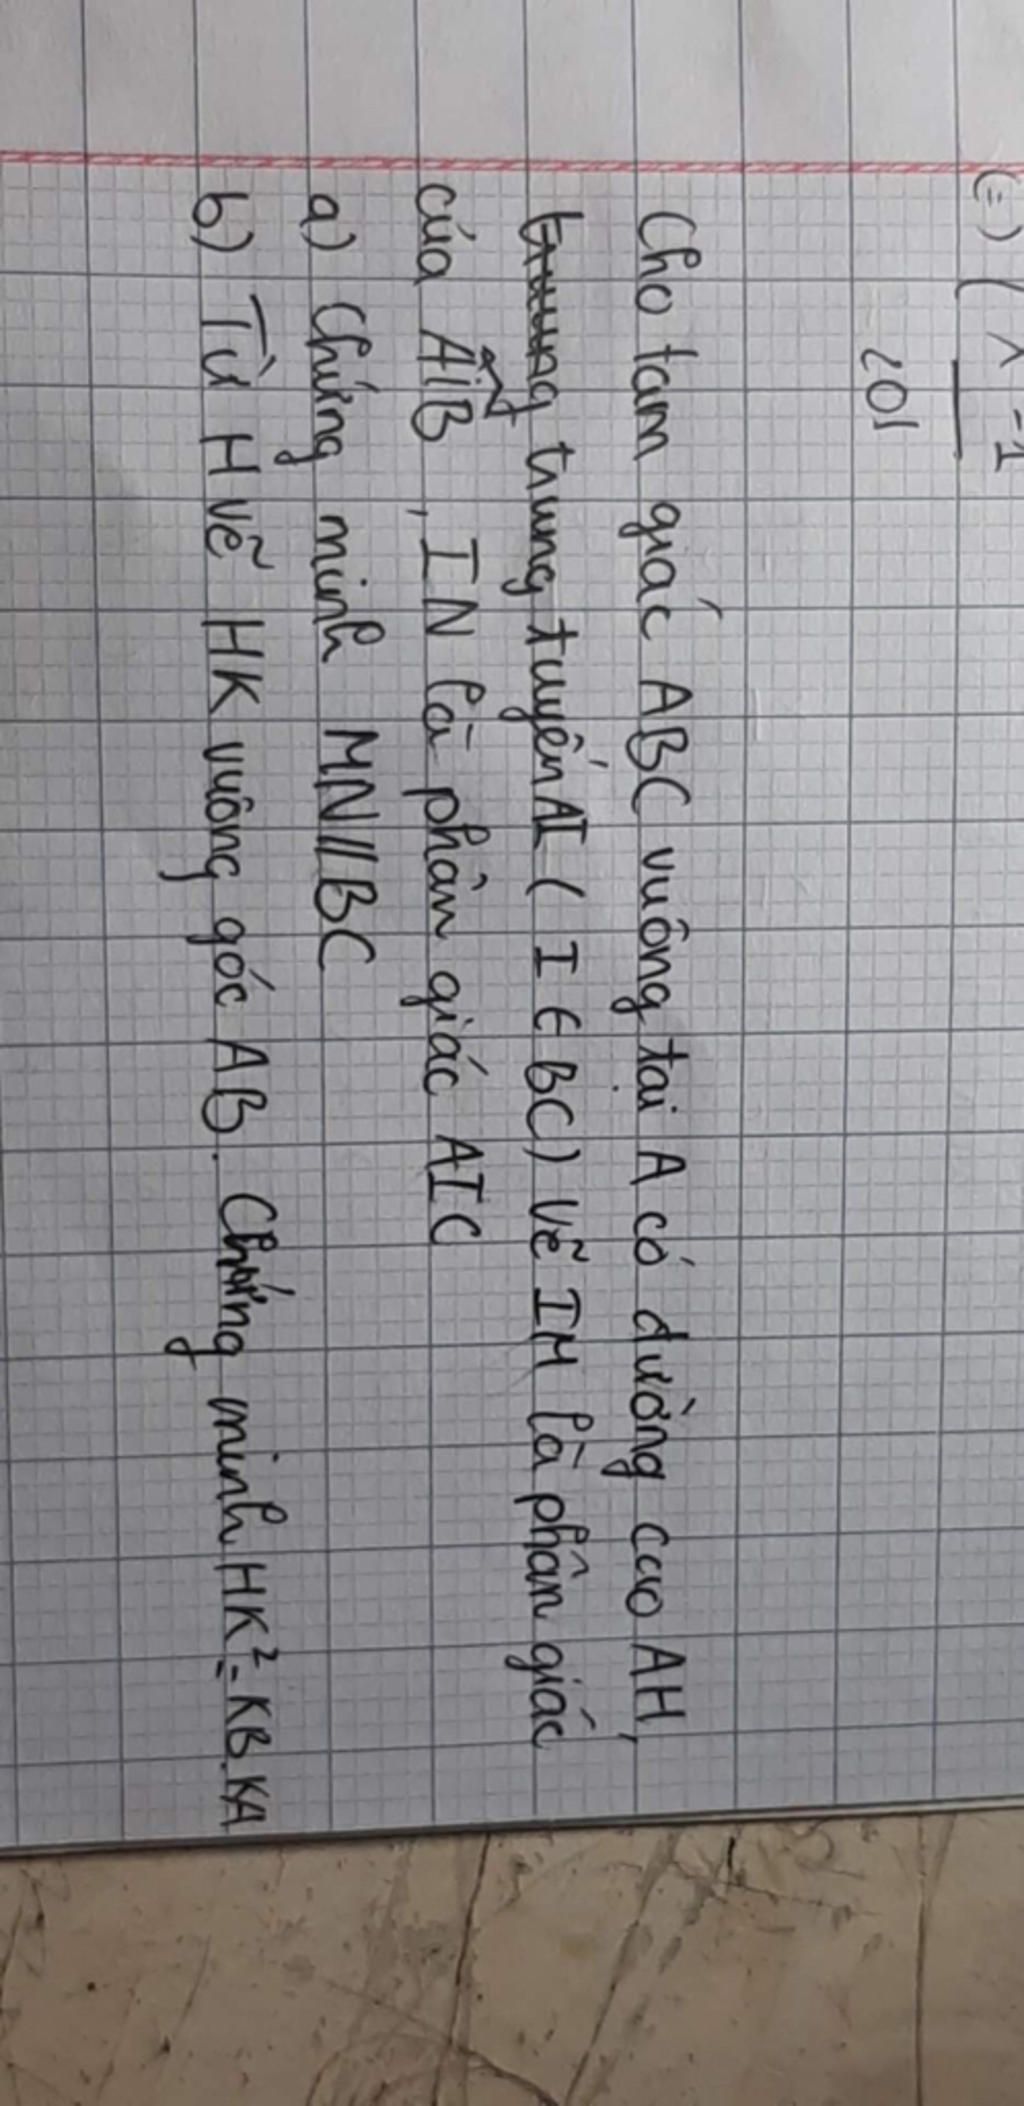 (=) ( x -1
201
Cho tam giác ABC vuông tại A có đường cao AH,
trung trung tuyến AI ( I ∈ BC) Vẽ IM là phân giác
của AIB , IN là phân giác AIC
a) Chứng minh MN//BC
b) Từ H vẽ HK vuông góc AB. Chứng minh HK² = KB.KA